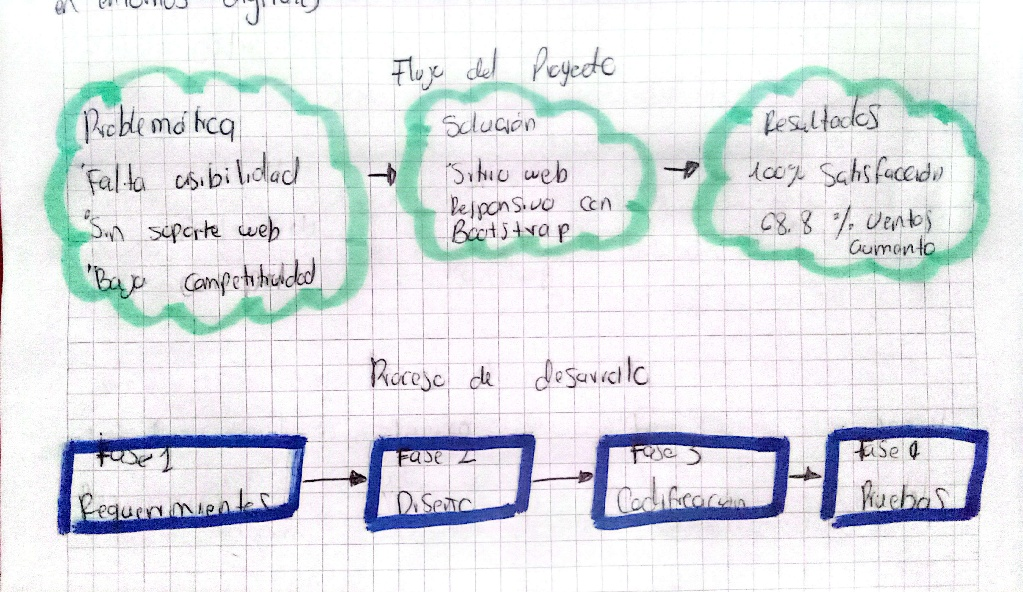 en entornos digitales
Flujo del Proyecto
Problemática
Falta usibilidad
Sin soporte web
Bajo competitividad
Solución
Sitio web
Responsivo con
Bootstrap
Resultados
100% Satisfacción
68.8 % ventas
aumento
Proceso de desarrollo
Fase 1
Requerimientos
Fase 2
Diseño
Fase 3
Codificación
Fase 4
Pruebas